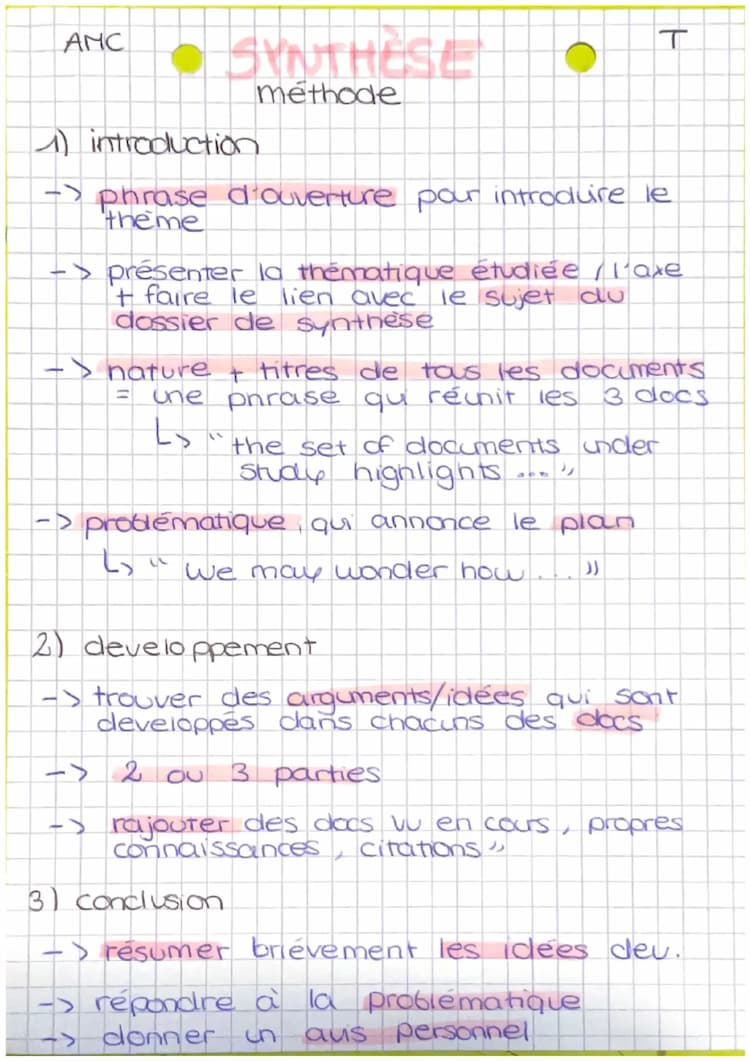 AMC
SYNTHÈSE
T
méthode
1) introduction
-> phrase d'ouverture pour introduire le
thème
-> présenter la thématique étudiée / l'axe
+ faire le lien avec le sujet du
dossier de synthèse
-> nature + titres de tous les documents
= une phrase qui réunit les 3 docs
↳ "the set of documents under
study highlights ..."
-> problématique qui annonce le plan
↳ "we may wonder how ..."
2) developpement
-> trouver des arguments/idées qui sont
developpés dans chacuns des docs
-> 2 ou 3 parties
-> rajouter des docs vu en cours, propres
connaissances, citations"
3) conclusion
-> résumer brièvement les idées dev.
-> répondre à la problématique
-> donner un avis personnel